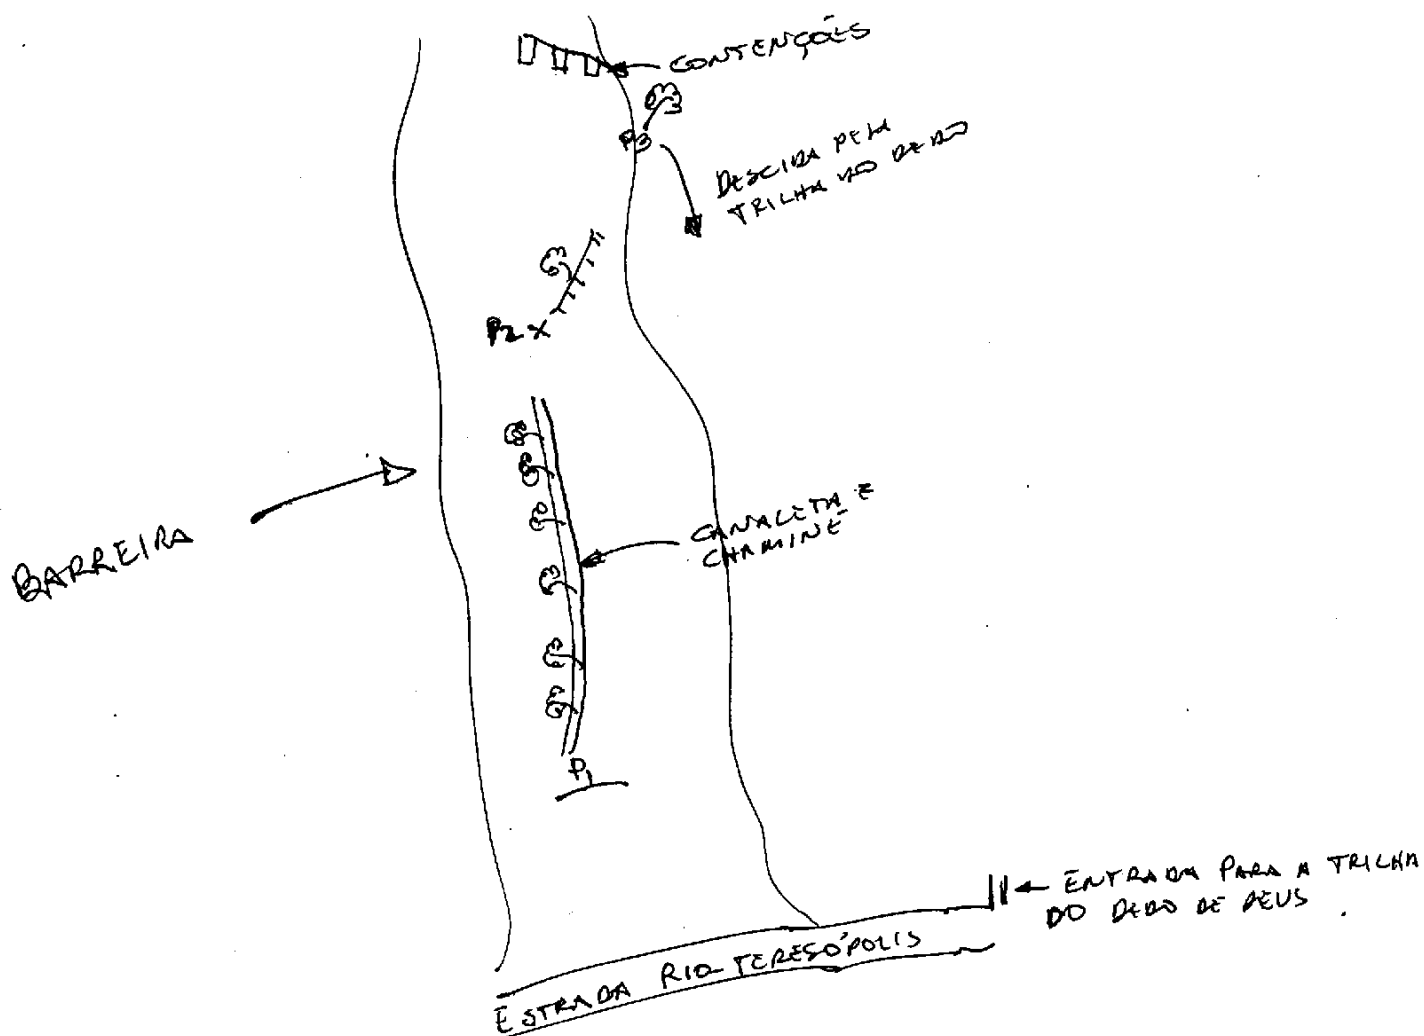 CONTENÇÕES
P3
DESCIDA PELA
TRILHA DO DEDO
P2
BARREIRA
CANALETA E
CHAMINÉ
P1
ENTRADA PARA A TRILHA
DO DEDO DE DEUS
ESTRADA RIO-TERESÓPOLIS